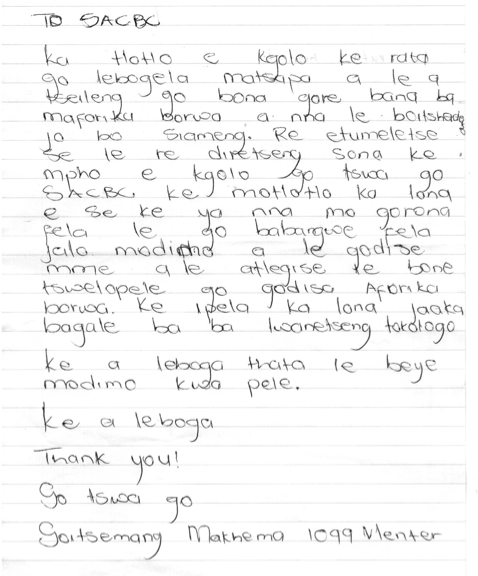 TO SACBC
ka tlotlo e kgolo ke rata
go lebogela matsapa a le a
tseileng go bona gore bana ba
maforika borwa a nna le boitshedg
jo bo siameng. Re etumeletse
se le re diretseng sona ke
mpho e kgolo go tswa go
SACBC. ke motlotlo ka lona
e se ke ya nna mo gorona
fela le go babangwe fela
jalo modimo a le godise
mme a le atlegise le bone
tswelopele go godisa Aforika
borwa. Ke ipela ka lona jaaka
bagale ba ba lwanetseng tokologo
ke a leboga thata le beye
modimo kwa pele.
ke a leboga
Thank you!
Go tswa go
Goitsemang Makhema 1099 Menter